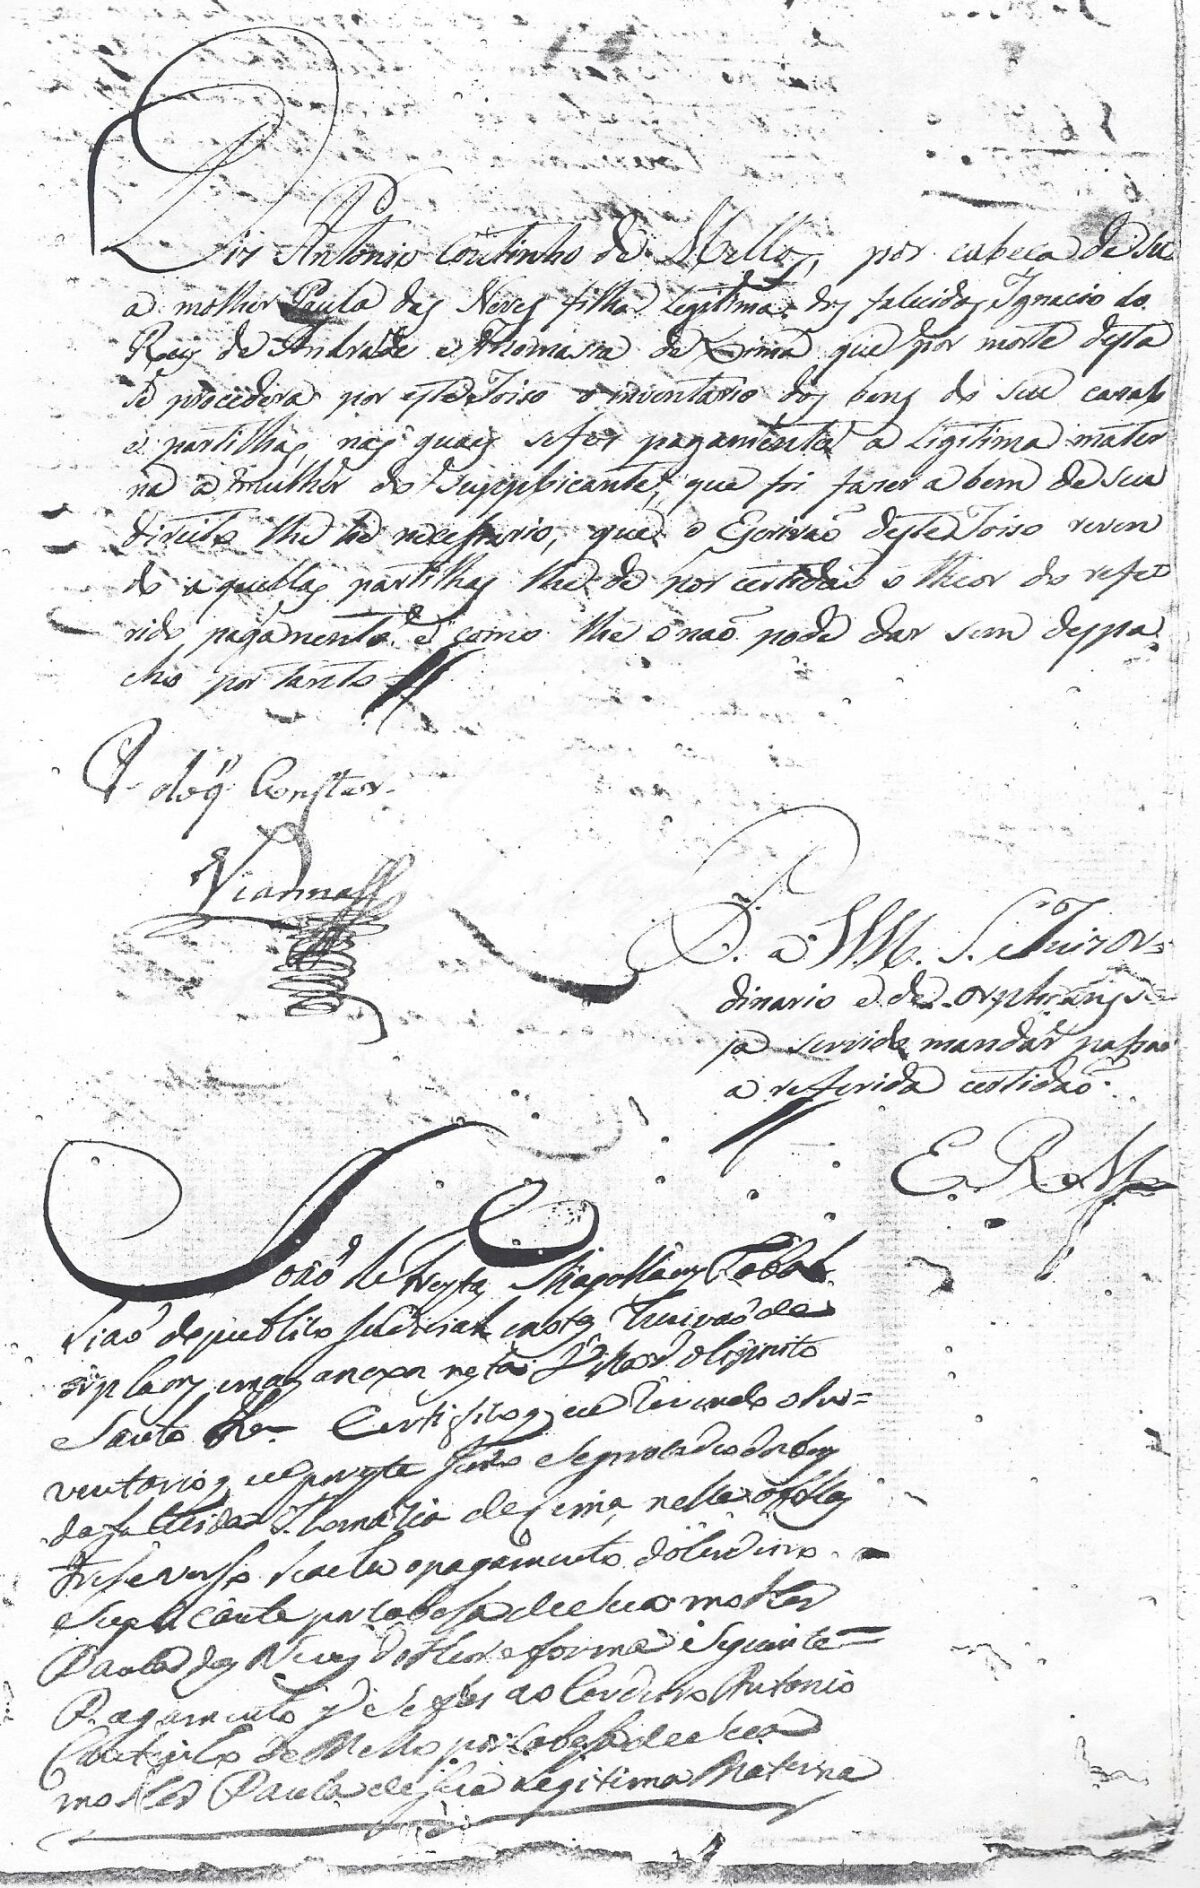 Diz Antonio Coutinho de Mello, por cabeca de su
a molher Paula das Neves filha legitima dos falecidos Ignacio do
Reis de Andrade e Thomasia de Lima que por morte desta
se procedera por este Joizo o inventario dos bens do seu cazal
e partilhas, nas quaes se fez pagamento a legitima mater
na a mulher do Suppplicante, que foi fazer a bem de seu
direito lhe he necessario, que o Escrivaõ deste Joizo reven
do aquellas partilhas lhe de por certidaõ o theor do refe
rido pagamento e como lhe o naõ pode dar sem despa
cho por tanto
P. do q Constar
Vianna
P. a V.M. S. Juiz Or
dinario e de Orphaons se
ja servido mandar passar
a referida certidaõ.
E. R. M.
Joaõ de Tabal
liaõ do publico Judicial e notas Escrivaõ de
orphaons e mais anexos nesta do Espirito
Santo Certifico que revendo o In=
ventario que por este Juizo se procedeo dos bens
da falecida Thomazia de Lima, nelle a folhas
treze verso se acha o pagamento do Erdeiro
Suplicante por cabessa de sua molher
Paula das Neves do theor e forma seguinte=
Pagamento que se fes ao Erdeiro Antonio
Coutinho de Mello por cabessa de sua
molher Paula de sua Legitima Materna